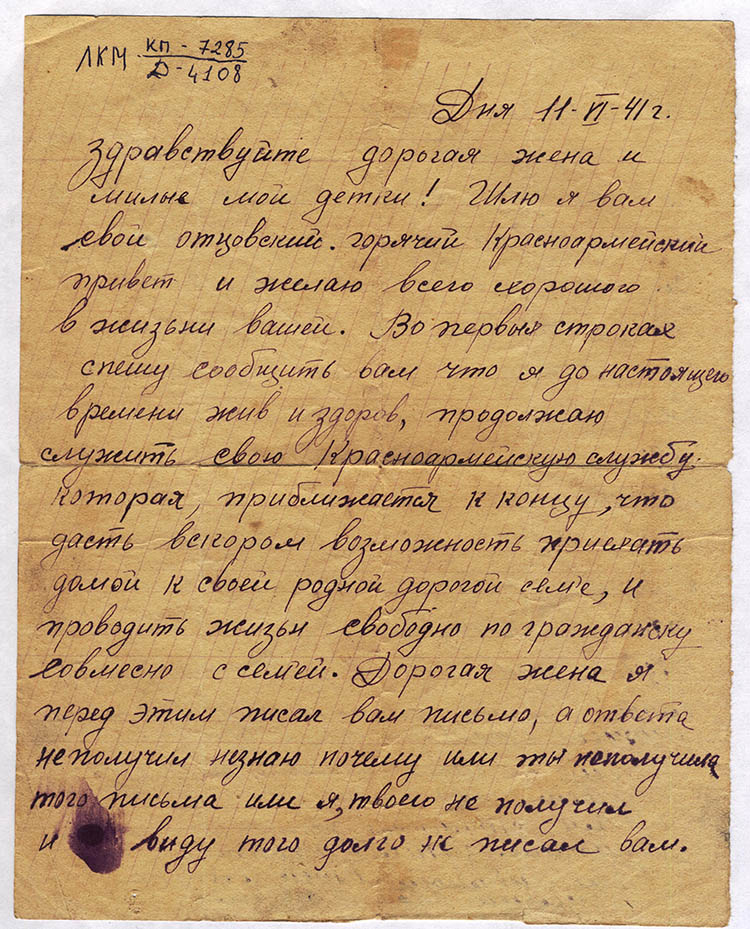 ЛКМ КП - 7285
Д - 4108
Дня 11-VI-41 г.
Здравствуйте дорогая жена и
милые мои детки! Шлю я вам
свой отцовский. горячий Красноармейский
привет и желаю всего хорошого
в жизьни вашей. Во первых строках
спешу сообщить вам что я до настоящего
времени жив и здоров, продолжаю
служить свою Красноармейскую службу.
которая, приближается к концу, что
дасть вскором возможность приехать
домой к своей родной дорогой семе, и
проводить жизьн свободно по граждански
совмесно с семей. Дорогая жена я
перед этим писал вам письмо, а ответа
неполучил незнаю почему или ты неполучила
того письма или я, твоего не получил
и виду того долго не писал вам.